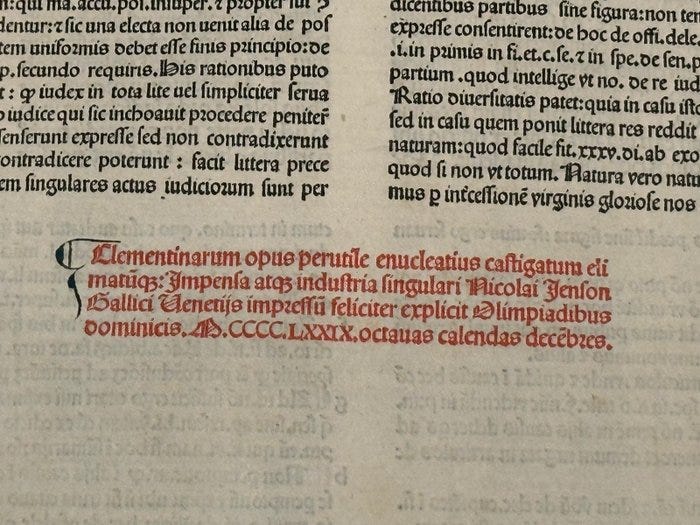 n: qui ma. accu. pol. insuper. ⁊ propter sui
dentur: ⁊ sic una electa non uenit alia de pos
tem uniformis debet esse finis principio: de
p. secundo requiris. His rationibus puto
t: ꝙ iudex in tota lite uel simpliciter serua
iudice qui sic inchoauit procedere peniteř
senserunt expresse sed non contradixerunt
contradicere poterunt: facit littera prece
em singulares actus iudiciorum sunt per
dicentibus partibus sine figura: non ten
expresse consentirent: de hoc de offi. dele.
.i. in primis in fi. et. c. se. ⁊ in spe. de sen. p
partium. quod intellige vt no. de re iud
Ratio diuersitatis patet: quia in casu isto
sed in casu quem ponit littera res reddit
naturam: quod facile fit. xxxv. di. ab exo
quod si non vt totum. Natura vero natu
mus ꝑ intcessionē virginis gloriose nos
Clementinarum opus perutile enucleatius castigatum eli
matūqꝫ: Impensa atqꝫ industria singulari Nicolai Jenson
Gallici Uenetijs impressū feliciter explicit Olimpiadibus
dominicis. M.CCCC.LXXIX. octauas calendas decēbres.